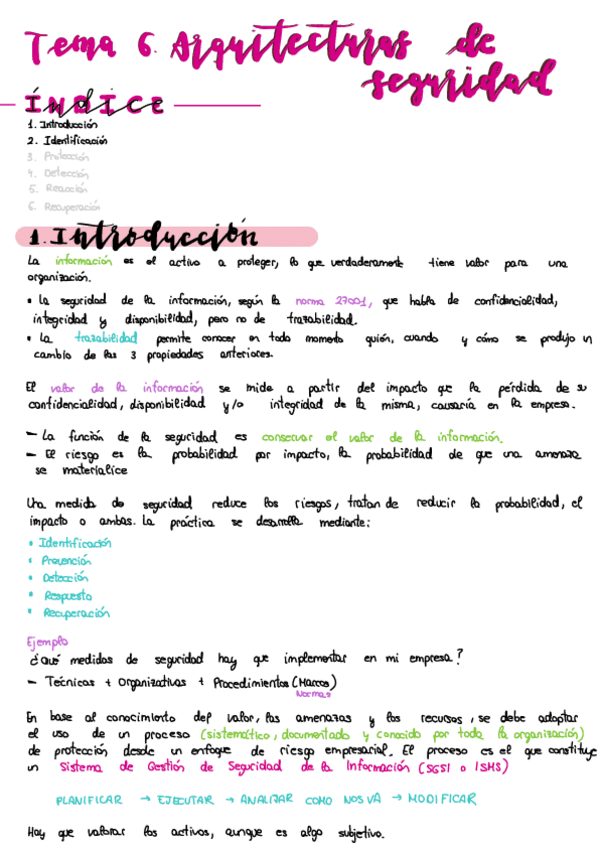 Tema 6. Arquitecturas de
seguridad
ÍNDICE
1. Introducción
2. Identificación
3. Protección
4. Detección
5. Reacción
6. Recuperación
1. Introducción
La información es el activo a proteger, lo que verdaderamente tiene valor para una
organización.
• La seguridad de la información, según la norma 27001, que habla de confidencialidad,
integridad y disponibilidad, pero no de trazabilidad.
• La trazabilidad permite conocer en todo momento quién, cuando y cómo se produjo un
cambio de las 3 propiedades anteriores.
El valor de la información se mide a partir del impacto que la pérdida de su
confidencialidad, disponibilidad y/o integridad de la misma, causaría en la empresa.
- La función de la seguridad es conservar el valor de la información.
- El riesgo es la probabilidad por impacto, la probabilidad de que una amenaza
se materialice
Una medida de seguridad reduce los riesgos, tratan de reducir la probabilidad, el
impacto o ambas. La práctica se desarrolla mediante:
• Identificación
• Prevención
• Detección
• Respuesta
• Recuperación
Ejemplo
¿Qué medidas de seguridad hay que implementar en mi empresa?
- Técnicas + Organizativas + Procedimientos (Marcos)
Normas
En base al conocimiento del valor, las amenazas y los recursos, se debe adoptar
el uso de un proceso (sistemático, documentado y conocido por toda la organización)
de protección desde un enfoque de riesgo empresarial. El proceso es el que constituye
un Sistema de Gestión de Seguridad de la Información (SGSI o ISMS)
PLANIFICAR → EJECUTAR → ANALIZAR COMO NOS VA → MODIFICAR
Hay que valorar los activos, aunque es algo subjetivo.